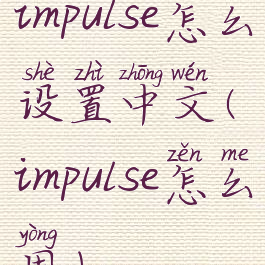 impulse怎么
shè zhì zhōng wén
设置中文(
zěn me
impulse怎么
yòng
用)